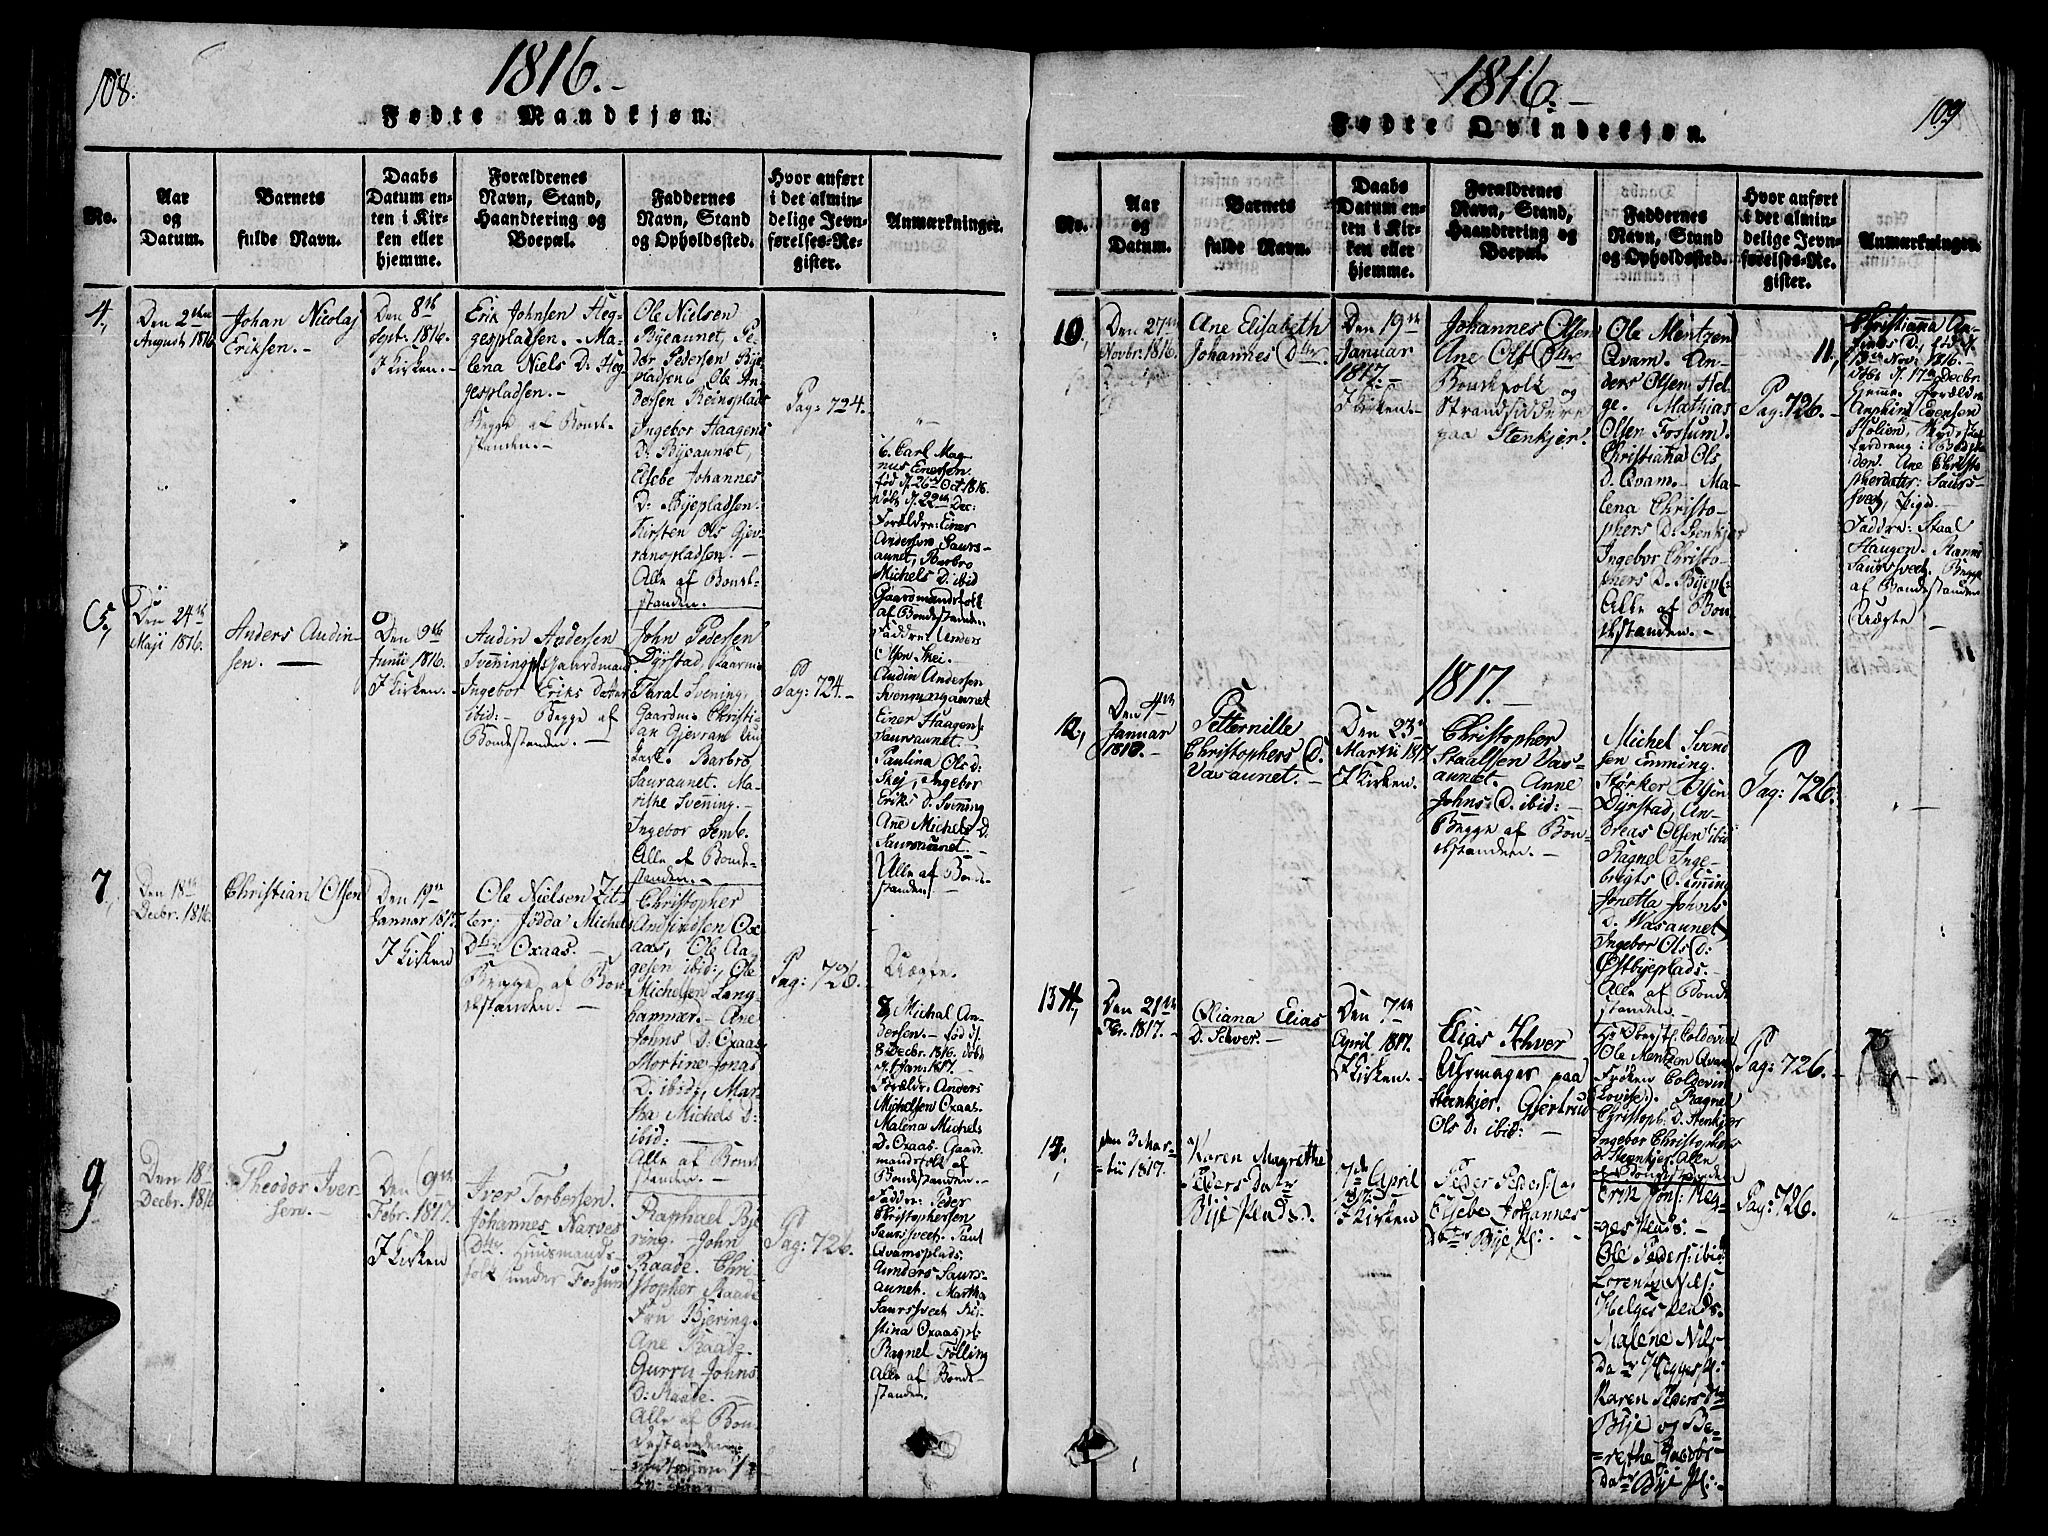 108.
1816.-
Fødte Mandkjøn.
No.
Aar
og
Datum.
Barnets
fulde Navn.
Daabs
Datum en-
ten i Kir-
ken eller
hjemme.
Forældrenes
Navn, Stand,
Haandtering og
Boepæl.
Faddernes
Navn, Stand
og Opholdssted.
Hvor anført
i det almin-
delige Jevn-
førelses-Re-
gister.
Anmærkninger.
4,
Den 2den
August 1816
Johan Nicolaj
Eriksen.-
Den 8de
Sept. 1816.
I Kirken.-
Erik Johnsen Heg-
gespladsen. Ma-
lena Niels D. Heg
gespladsen.-
Begge af Bonde-
standen.-
Ole Nielsen
Byeaunet, Pe-
der Pedersen Bye
pladsen, Ole An-
dersen Reinsplads
Ingebor Haagens
D. Byeaunet,
Alebe Johannes
D. Byepladsen.
Kirsten Ols Gjev-
ranspladsen.-
Alle af Bonde-
standen.
Pag: 724.
5,
Den 24de
Maji 1816.
Anders Audin-
sen.-
Den 9de
Junii 1816.
I Kirken.-
Audin Andersen
Svenning Gaardmand
Ingebor Eriks Dater
ibid:- Begge af
Bondestanden.-
John Pedersen
Dyrstad, Gaardm.
Taral Svening,
Gaardm. Christi-
an Gjevran
Barbro
Sauraunet. Ma-
rithe Svening.-
Ingebor Semb.
Alle af Bonde-
standen.-
Pag: 724.-
6. Carl Mag
nus Einersen.
fød d. 26de Oct 1816.
døbt d. 22de Dec:
Forældre: Einer
Andersen Saurs-
aunet, Barbro
Michels D. ibid
Gaardmandsfolk
af Bondestanden
Faddre: Anders
Olsen Skei.-
Audin Andersen
Svenningaunet
Einer Haagens:
Saursaunet.-
Paulina Ols D:
Skej, Ingebor
Eriks D. Svening
Ane Michels D.
Saursaunet.-
Alle af Bonde-
standen.
7,
Den 18de
Decbr. 1816.
Christian Olsen
Den 19de
Januar 1817.
I Kirken
Ole Nielsen Fit-
ter, Jødda Michels
Dtr Oxaas.-
Begge af Bon-
destanden.-
Christopher
Ox
aas, Ole Aa-
gesen ibid:, Ole
Michelsen Lang-
hammer.- Ane
Johns D: Oxaas,
Mortine Jonas
D. ibid:, Mar-
tha Michels D:
ibid:-
Alle af Bonde-
standen.-
Pag: 726.
Uægte.
8, Michal An-
dersen.- fød d.
8 Decbr. 1816. døbt
d. 1 Jan: 1817.-
Forældr: Anders
Michelsen Oxaas.
Malena Michels
D. Oxaas. Gaard
mandsfolk af
Bondestanden.-
Faddre: Peder
Christophersen
Saursveet. Paul
Qvamsplads
Anders Saurs-
aunet. Martha
Saursveet. Kir-
stina Oxaaspl:
Ragnel Følling
Alle af Bonde-
standen.
9,
Den 18
Decbr. 1816
Theodor Iver-
sen.-
Den 9de
Febr. 1817.
I Kirken
Iver Torbersen.
Johannes Narves
Dtr. Huusmands-
folk under Fossum
Raphael Bje-
ring. John
Raade. Chri-
stopher Raade
Fru Bjering.
Ane Raade.
Gurru Johns
D: Raade.-
Alle af Bon-
destanden
Pag: 726.
1816.-
109
Fødte Qvindekjøn.
No.
Aar
og
Datum.
Barnets
fulde Navn.
Daabs
Datum en-
ten i Kir-
ken eller
hjemme.
Forældrenes
Navn, Stand,
Haandtering og
Boepæl.
Faddernes
Navn, Stand
og Opholdssted.
Hvor anført
i det almin-
delige Jevn-
førelses-Re-
gister.
Anmærkninger.
10,
Den 27de
Novbr. 1816.
Ane Elisabeth
Johannes Dtr.
Den 19de
Januar
1817.-
I Kirken.-
Johannes Olsen
Ane Ols Dtr
Bondefolk og
Strandsiddere
paa Stenkjer.
Ole Mentzen
Qvam. An-
ders Olsen Hel-
ge. Mathias
Olsen Fossum.
Christiana Ols
D. Qvam.- Ma-
lena Christo-
phers D. Stenkjer
Ingebor Christo-
phers D. Byepl:
Alle af Bon-
destanden.-
Pag: 726.-
11,
Christianna An-
fins D., fød d.
13de Nov: 1816.-
døbt d. 17de Decbr.
hjemme. Forældre
Anphin Evensen
Ane Christo
pherdatter: Saurs-
sveet, Pige.-
Faddre: Staal
Haugen. Ranni
Saursveet. Begge
af Bondestanden
Uægte-
1817.-
12,
Den 4de
Januar
1817.-
Petternille
Christophers D.
Vasaunet.-
Den 23de
Martii 1817
I Kirken.
Christopher
Staalsen Vas-
aunet. Anne
Johns D. ibid:-
Begge af Bon-
destanden.-
Michel Svend
sen Emming.
Størker Olsen
Dyrstad, An-
dreas Olsen ibid
Ragnel Inge-
brigts D. Eming
Jonetta Johns
D. Wasaunet
Ingebor Ols D:
Østbyeplads.-
Alle af Bonde-
standen.-
Pag: 726.
13
Den 21de
Febr. 1817.-
Oliana Elias
D. Schver.-
Den 7de
April 1817.
I Kirken.-
Elias Schver
Uhrmager paa
Stenkjer. Gjertrud
Ols D: ibid:-
Hr. Oberstl: Coldevin
Ole Mentzen Qvam
Frøken Coldevin
(Lovise). Ragnel
Christoph: D. Stenkjer
Ingebor Christophers
D. Stenkjer. Alle
af Bondestanden
Pag: 726.-
14,
den 3 Mar-
tii 1817.
Karen Magrethe
Peders Datr
Bye Plads.
7de April
1817.
I Kirken
Peder Peders: og
Elsebe Johannes
datr Bye Pl:-
Erik Jons: Heg-
ges Plads:-
Ole Peders: ibid:
Lorentz Nils:
Helges Plads.
Malene Nils
Datr Hegges Pl:
Karen Peders Dtr
Bye og Be-
rethe Jacobs
Datr Bye Pl:-
Pag: 726.